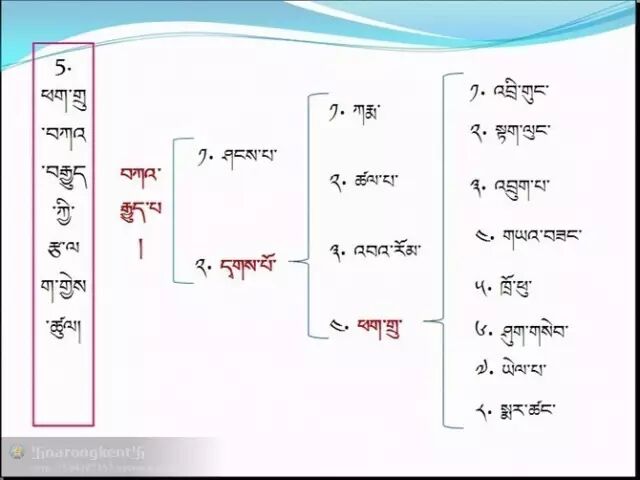 5.
ཕག་གྲུ
་བཀའ
་བརྒྱུད
་ཀྱི
་རྩ་ལ
ག་གྱེས
་ཚུལ།
བཀའ་
རྒྱུད་པ
།
༡. ཤངས་པ་
༢. དྭགས་པོ་
༡. ཀརྨ་
༢. ཚལ་པ་
༣. འབའ་རོམ་
༤. ཕག་གྲུ་
༡. འབྲི་གུང་
༢. སྟག་ལུང་
༣. འབྲུག་པ་
༤. གཡའ་བཟང་
༥. ཁྲོ་ཕུ་
༦. ཤུག་གསེབ་
༧. ཡེལ་པ་
༨. སྨར་ཚང་
卐narongkent卐